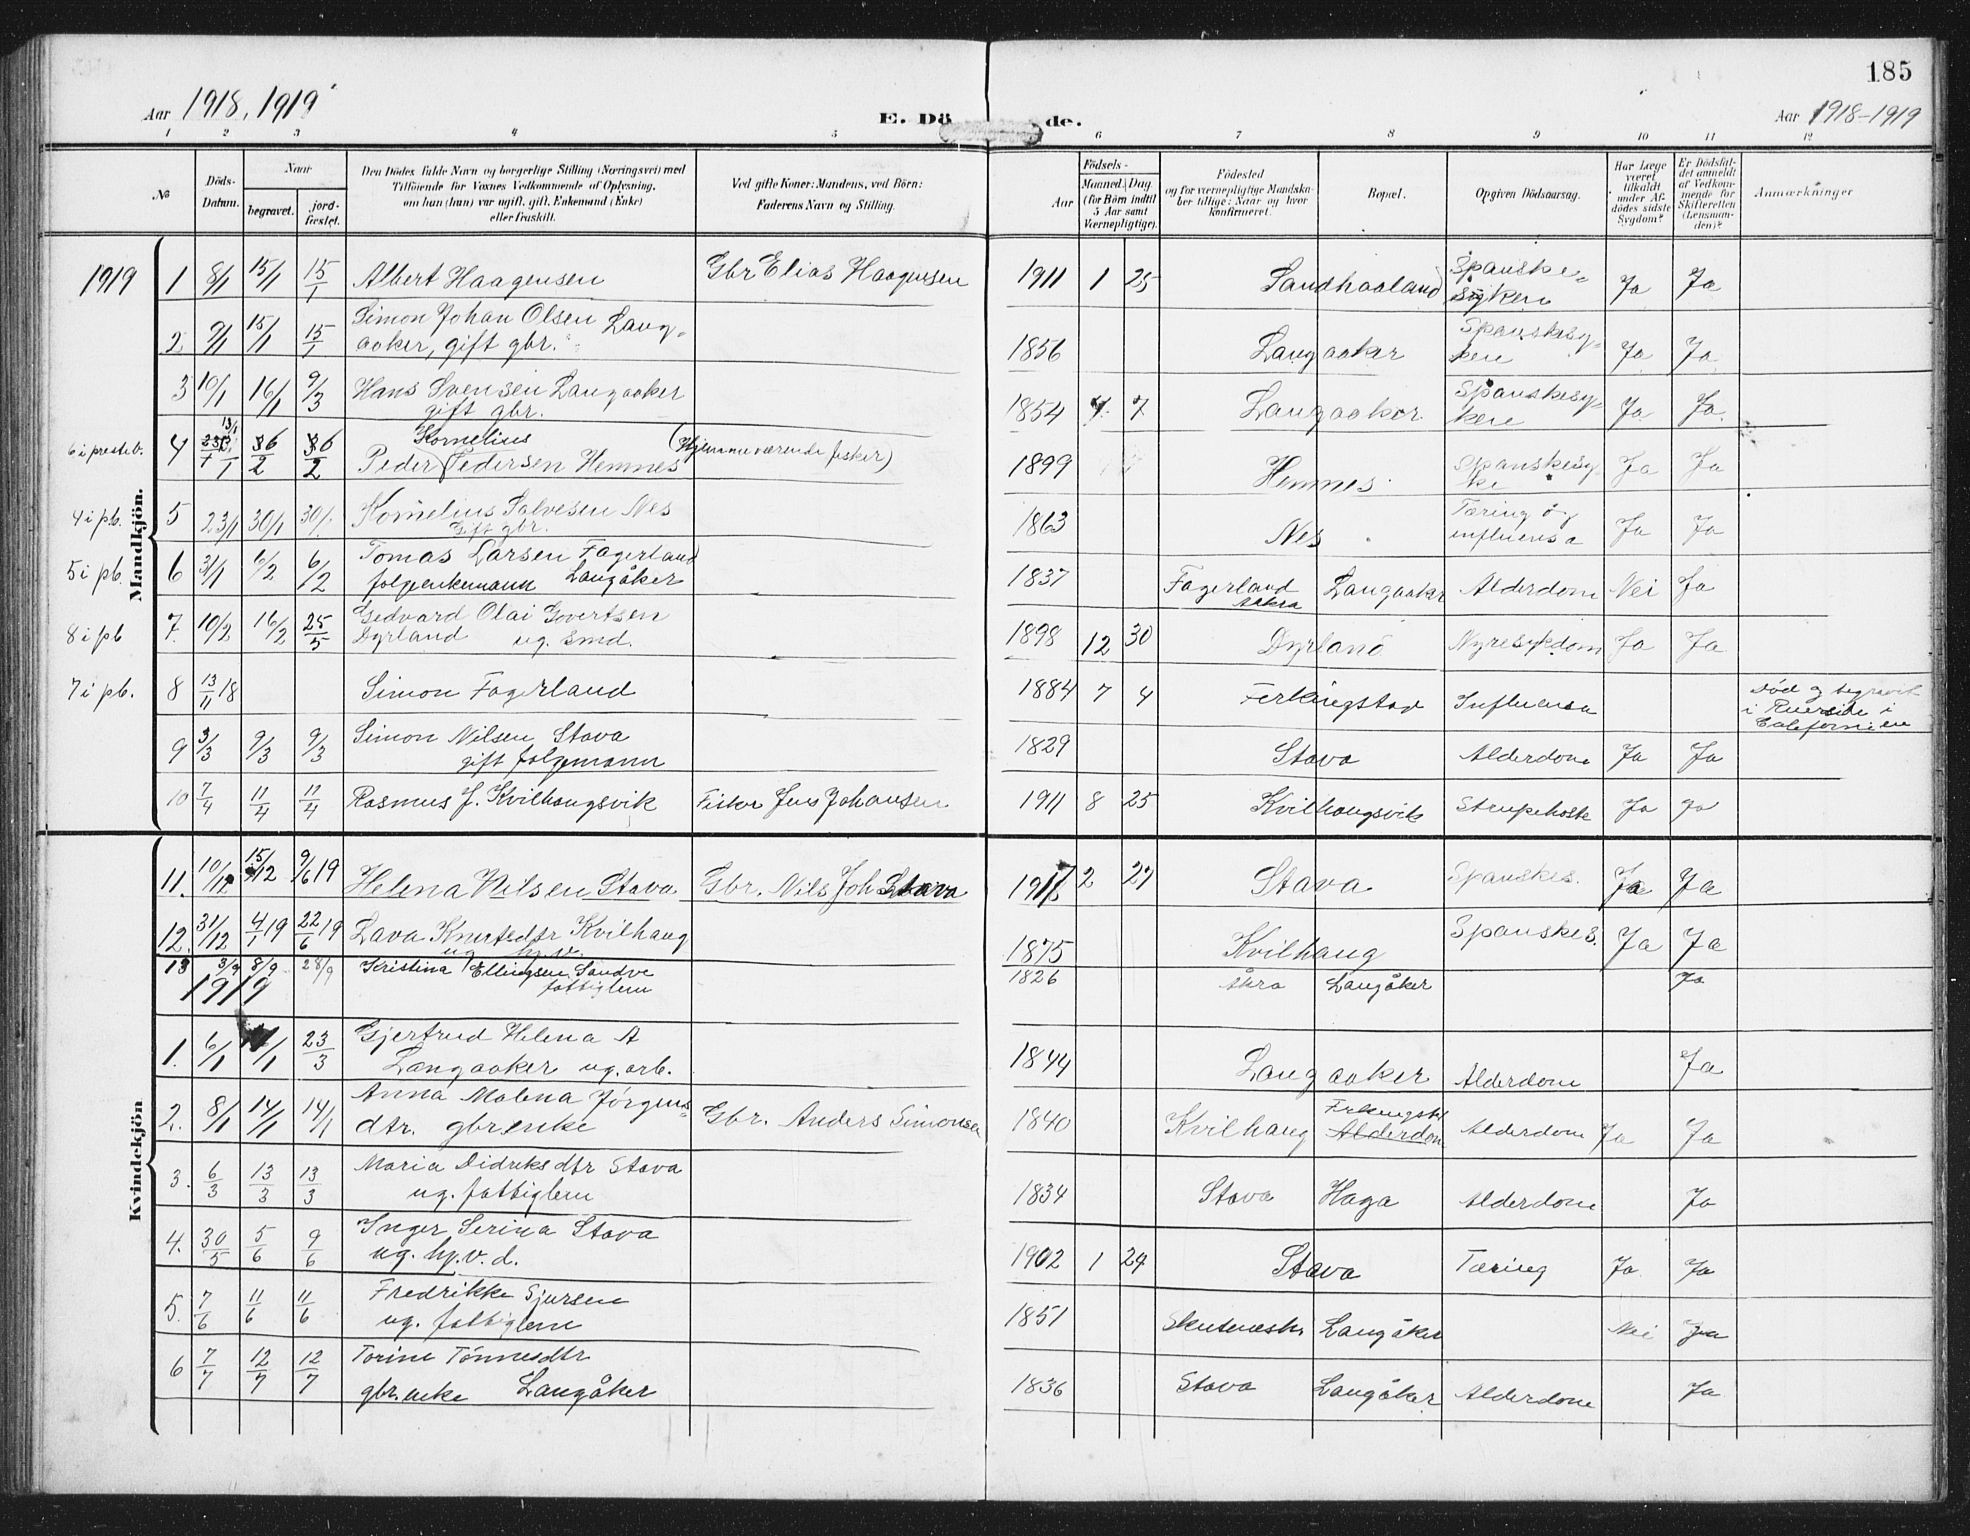 185
Aar 1918, 1919
E. Dö de.
Aar 1918-1919
1 2 3 4 5 6 7 8 9 10 11 12
№
Döds-Datum.
Naar
begravet.
jord-fæstet.
Den Dödes fulde Navn og borgerlige Stilling (Næringsvei) med
Tilföiende for Voxnes Vedkommende af Oplysning,
om han (hun) var ugift, gift, Enkemand (Enke)
eller fraskilt.
Ved gifte Koner: Mandens, ved Börn:
Faderens Navn og Stilling.
Födsels-
Aar
Maaned. Dag
(for Börn indtil
5 Aar samt
Værnepligtige).
Födested
og for værnepligtige Mandska-
ber tillige: Naar og hvor
konfirmeret.
Bopæl.
Opgiven Dödsaarsag.
Har Læge
været
tilkaldt
under Af-
dödes sidste
Sygdom?
Er Dödsfal-
det anmeldt
af Vedkom-
mende for
Skifteretten
(Lensman-
den)?
Anmærkninger
Mandkjön.
1919 1 8/1 15/1 15/1 Albert Haagensen Gbr Elias Haagensen 1911 1 25 Sandhaaland Spanske-
syken Ja Ja
2 9/1 15/1 15/1 Simon Johan Olsen Lang-
aaker, gift gbr. 1856 Langaaker Spanskesy-
ken Ja Ja
3 10/1 16/1 9/3 Hans Svensen Langaaker
gift gbr. 1854 7 Langaaker Spanskesy-
ken Ja Ja
6 i presteb. 4 13/1 6/2 6/2 Kornelius
Peder Pedersen Hemnes (Hjemmeværende fisker) 1899 Hemnes Spanskesy-
ke Ja Ja
4 i pb. 5 23/1 30/1 30/1 Kornelius Salvesen Nes
Gift gbr. 1863 Nes Tæring og
influensa Ja Ja
5 i pb. 6 31/1 6/2 6/2 Tomas Larsen Fagerland
folgenkemann Langåker 1837 Fagerland
Skra Langaaker Alderdom Nei Ja
8 i pb 7 10/2 16/2 25/5 Gedvard Olai Govertsen
Dyrland ug. Smd. 1898 12 30 Dyrland Nyresykdom Ja Ja
7 i pb. 8 13/11 18 Simon Fagerland 1884 7 4 Ferkingstad Influensa Död og begravet
i Riverside i
Californien
9 3/3 9/3 9/3 Simon Nilsen Stava
gift folgemann 1829 Stava Alderdom Ja Ja
10 7/4 11/4 11/4 Rasmus J. Kvilhaugsvik Fisker Jens Johansen 1911 8 25 Kvilhaugsvik Strupehoste Ja Ja
Kvindekjön
11. 10/12 15/12 9/6 19 Helena Nilsen Stava Gbr. Nils Joh Stava 2 27 Stava Spanskes. Ja Ja
12. 31/12 4/1 19 22/6 19 Lava Knutsdtr Kvilhaug
ug hp.v. 1875 Kvilhaug Spanskes. Ja Ja
13 3/9 8/9 28/9 Kristina Ellingsen Sandve
fattiglem 1826 Skra Langåker Ja
1919
1. 6/1 23/3 Gjertrud Helena A
Langaaker ug. arb. 1844 Langaaker Alderdom Ja
2. 8/1 14/1 14/1 Anna Malena Jörgens-
dtr. gbrenke Gbr. Anders Simonsen 1840 Kvilhaug Ferkingstd
Alderdom Alderdom Ja Ja
3. 6/3 13/3 13/3 Maria Didriksdtr Stava
ug. fattiglem 1834 Stava Haga Alderdom Ja
4. 30/5 5/6 9/6 Inger Serina Stava
ug. hp.v.d. 1902 1 24 Stava Tæring Ja Ja
5. 7/6 11/6 11/6 Fredrikke Sjursen
ug. fattiglem 1851 Skutenesh. Langåker Nei Ja
6 7/7 12/7 12/7 Torine Tönnesdtr
gbr.enke Langåker 1836 Stava Langåker Alderdom Ja